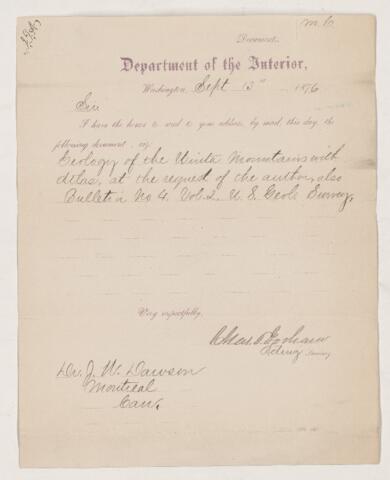 Document.
Department of the Interior,
Washington, Sept 13th 1876
Sir
I have the honor to send to your address, by mail, this day, the
following document, viz:
Geology of the Uinta Mountains with
atlas, at the request of the author, also
Bulletin No 4. Vol. 2. U. S. Geol. Survey.
Very respectfully,
Chas. T. Gorham
Acting Secretary
Dr. J. W. Dawson
Montreal
Can.